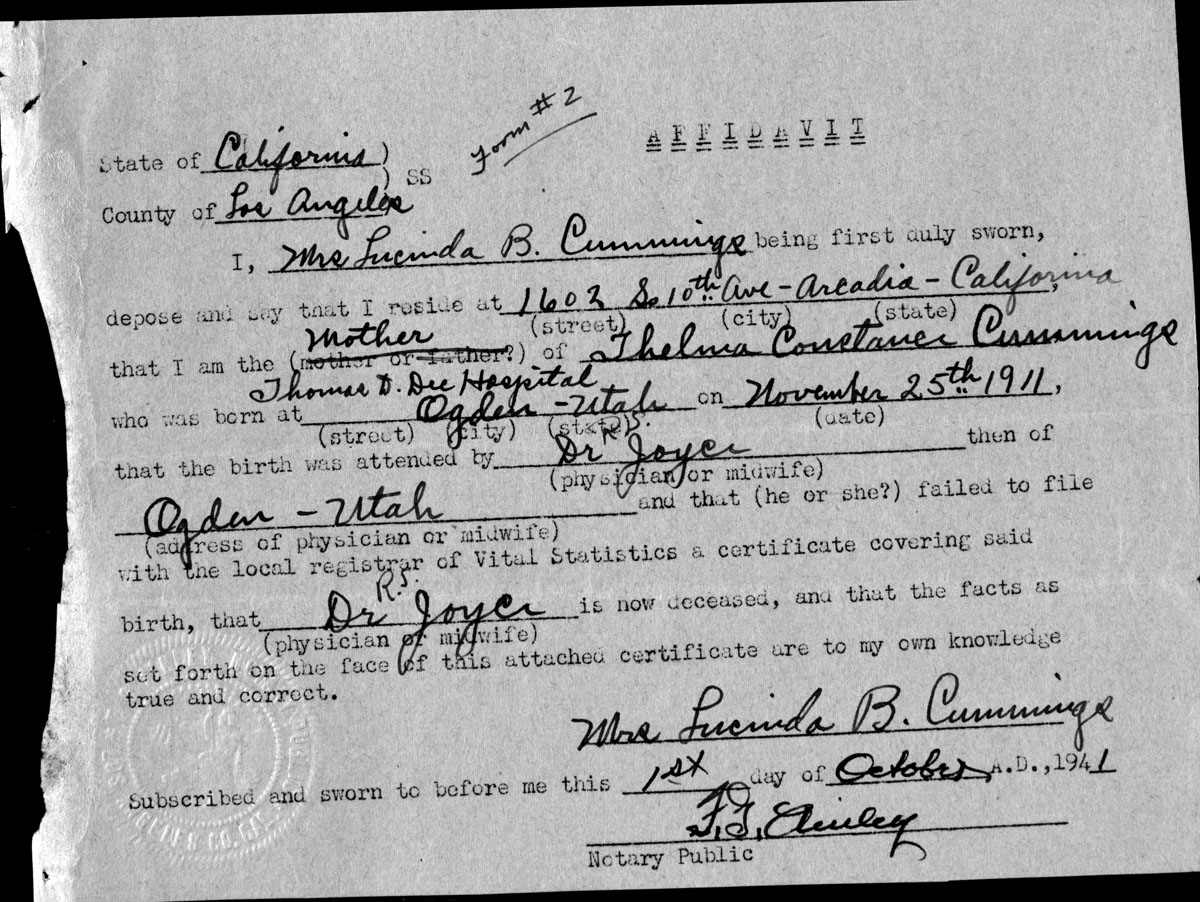 Form #2
AFFIDAVIT
State of California )
) SS
County of Los Angeles
I, Mrs Lucinda B. Cummings being first duly sworn,
depose and say that I reside at 1602 So 10th Ave - Arcadia - California,
(street) (city) (state)
Mother
that I am the (mother or father?) of Thelma Constance Cummings
Thomas D. Dee Hospital
who was born at Ogden - Utah on November 25th 1911,
(street) (city) (state) (date)
R.S.
that the birth was attended by Dr Joyce then of
(physician or midwife)
Ogden - Utah and that (he or she?) failed to file
(address of physician or midwife)
with the local registrar of Vital Statistics a certificate covering said
R.S.
birth, that Dr Joyce is now deceased, and that the facts as
(physician or midwife)
set forth on the face of this attached certificate are to my own knowledge
true and correct.
Mrs Lucinda B. Cummings
Subscribed and sworn to before me this 1st day of October A.D., 1941
F. F.
Notary Public